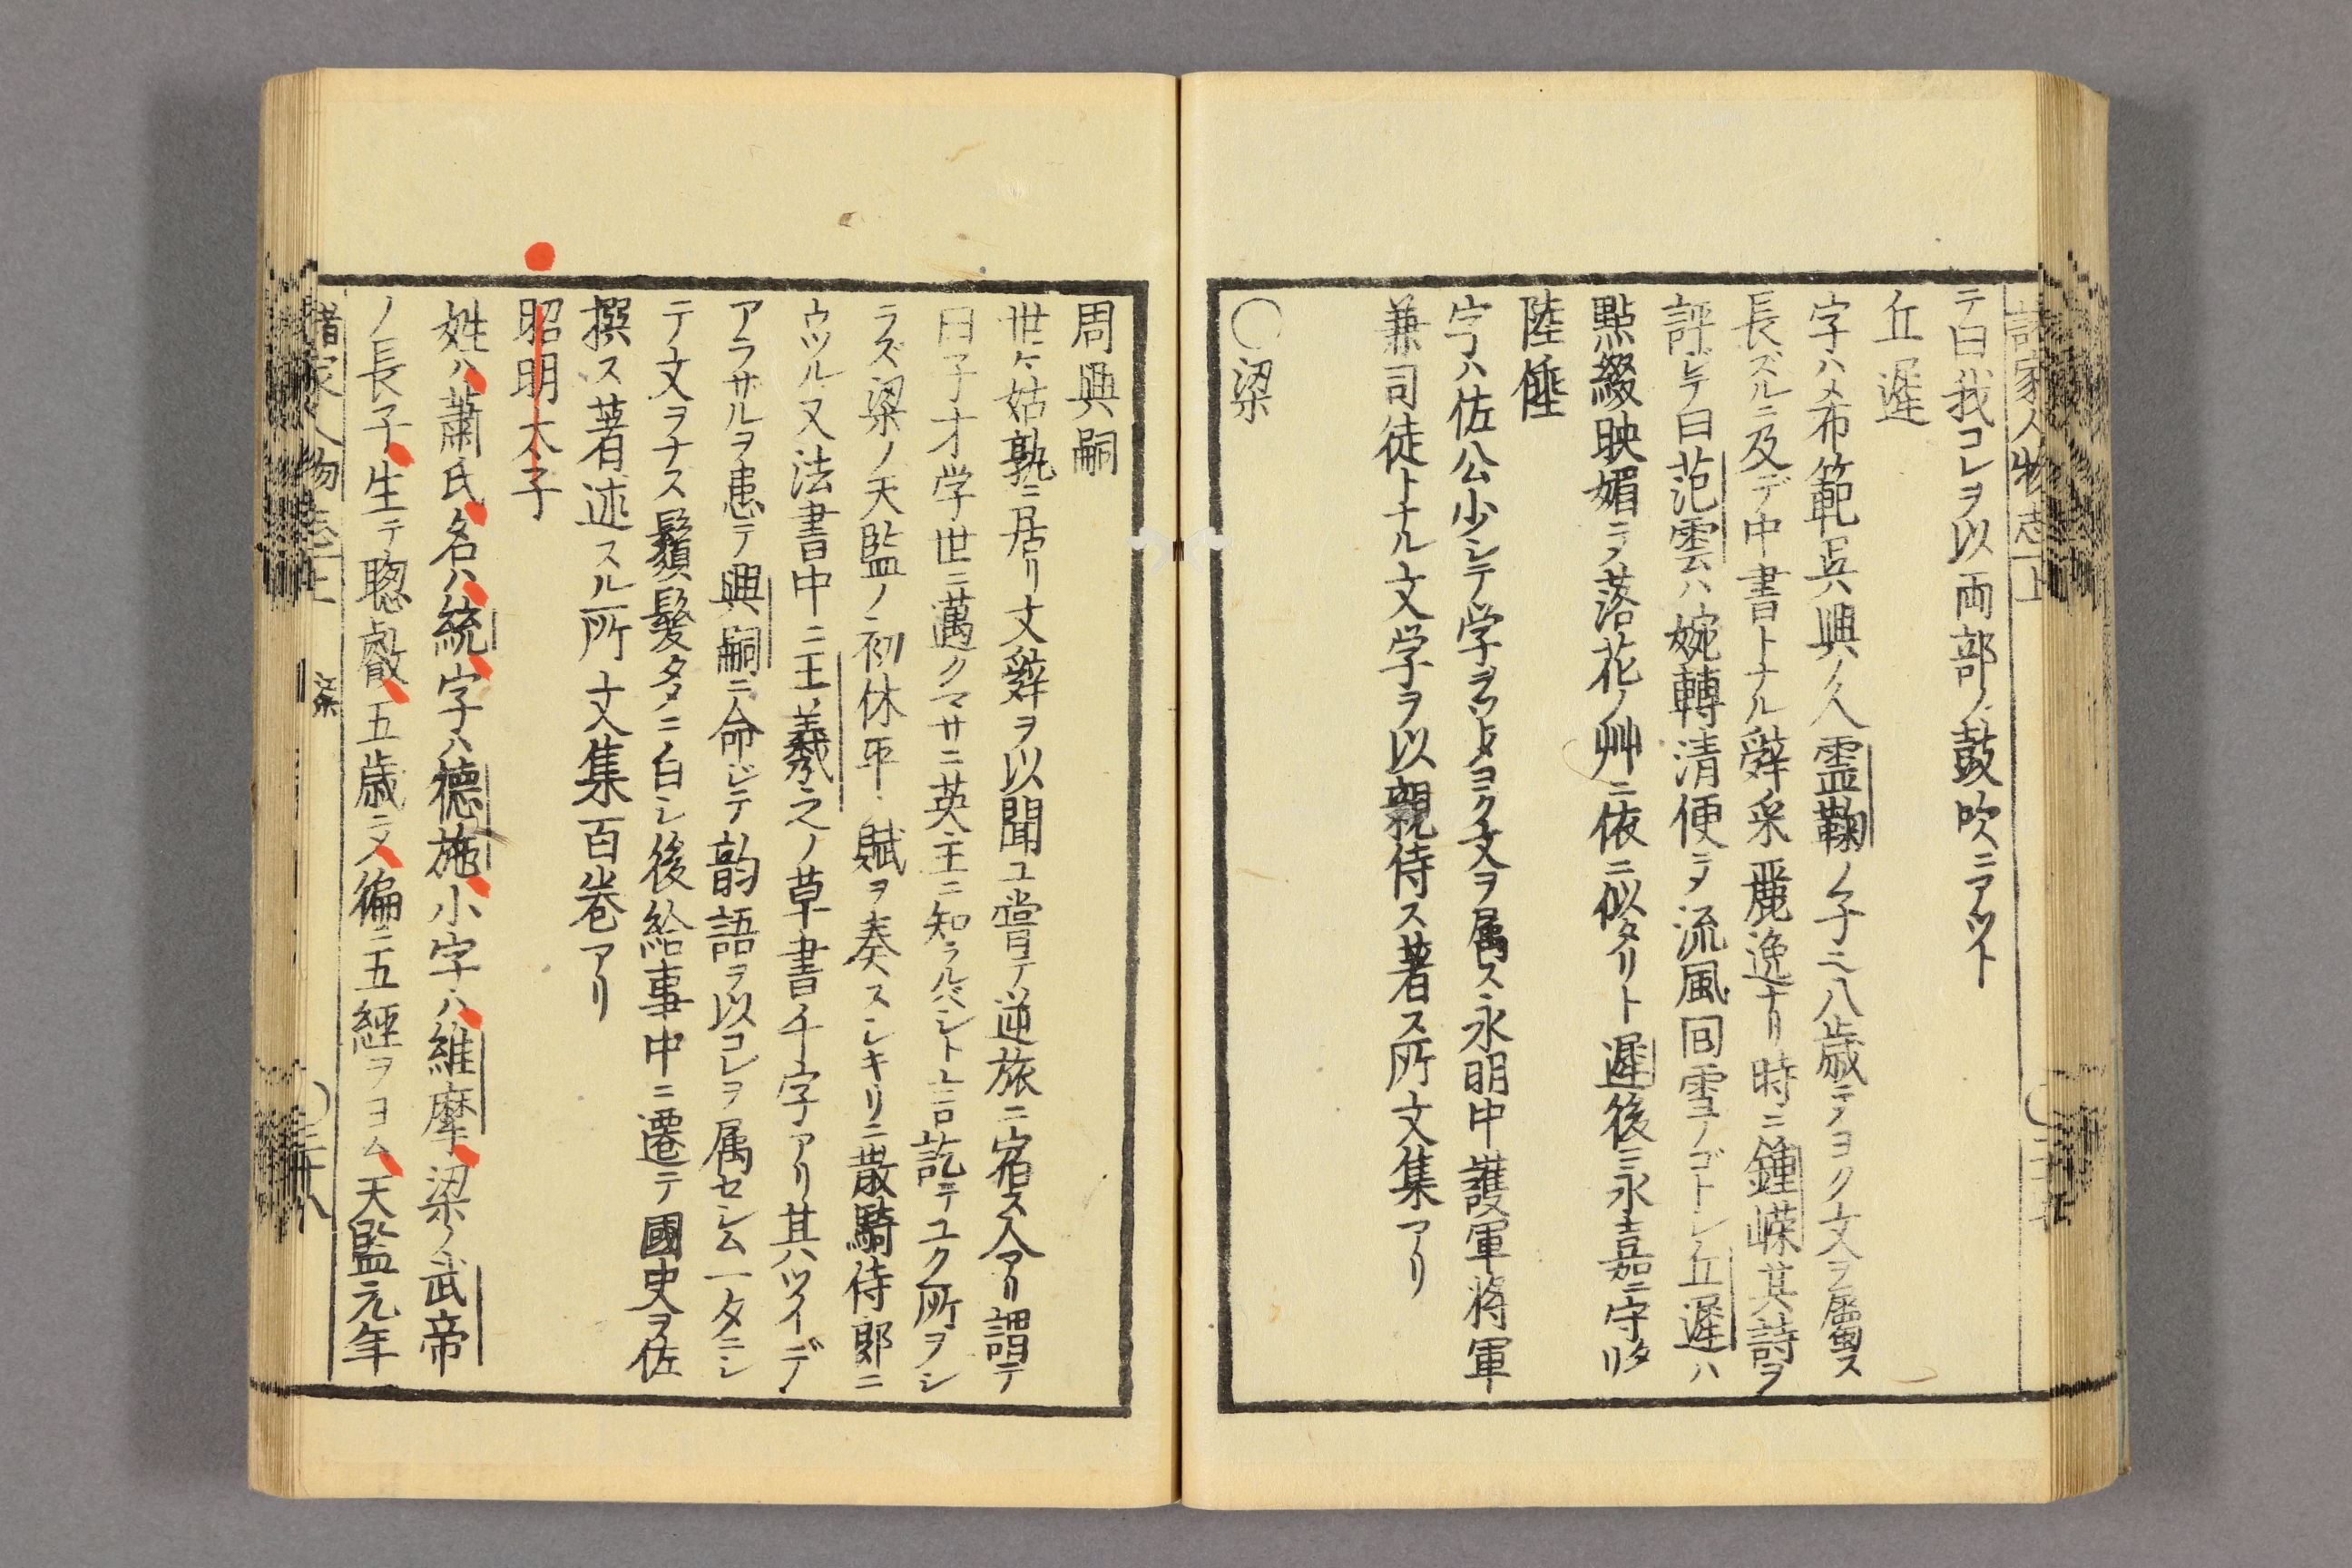 諸家人物志上
テ曰我コレヲ以両部ノ鼓吹ニアツト
丘遲
字ハ希範呉興ノ人霊鞠ノ子ニ八歳ニメヨク文ヲ屬ス
長ズルニ及デ中書トナル辤采麗逸ナリ時ニ鍾嶸其詩ヲ
評ジテ曰范雲ハ婉轉清便ニメ流風回雪ノゴトシ丘遲ハ
點綴映媚ニメ落花ノ艸ニ依ニ似タリト遲後ニ永嘉ニ守タリ
陸倕
字ハ佐公少シテ学ヲツトメヨク文ヲ属ス永明中護軍将軍
兼司徒トナル文学ヲ以親侍ス著ス所文集アリ
〇梁
周興嗣
世々姑孰ニ居リ文辤ヲ以聞ユ嘗テ逆旅ニ宿ス人アリ謂テ
曰子才学世ニ邁クマサニ英主ニ知ラルベシト言訖テユク所ヲシ
ラズ梁ノ天監ノ初休平賦ヲ奏スシキリニ散騎侍郎ニ
ウツル又法書中ニ王羲之ノ草書千字アリ其ハツイデ
アラサルヲ患テ興嗣ニ命ジテ韵語ヲ以コレヲ属セシム一夕ニシ
テ文ヲナス鬚髮タメニ白シ後給事中ニ遷テ國史ヲ佐
撰ス著述スル所文集百巻アリ
昭明太子
姓ハ蕭氏名ハ統字ハ德施小字ハ維摩梁ノ武帝
ノ長子生テ聰叡五歳ニメ徧ニ五經ヲヨム天監元年
諸家人物志上 梁 三十八